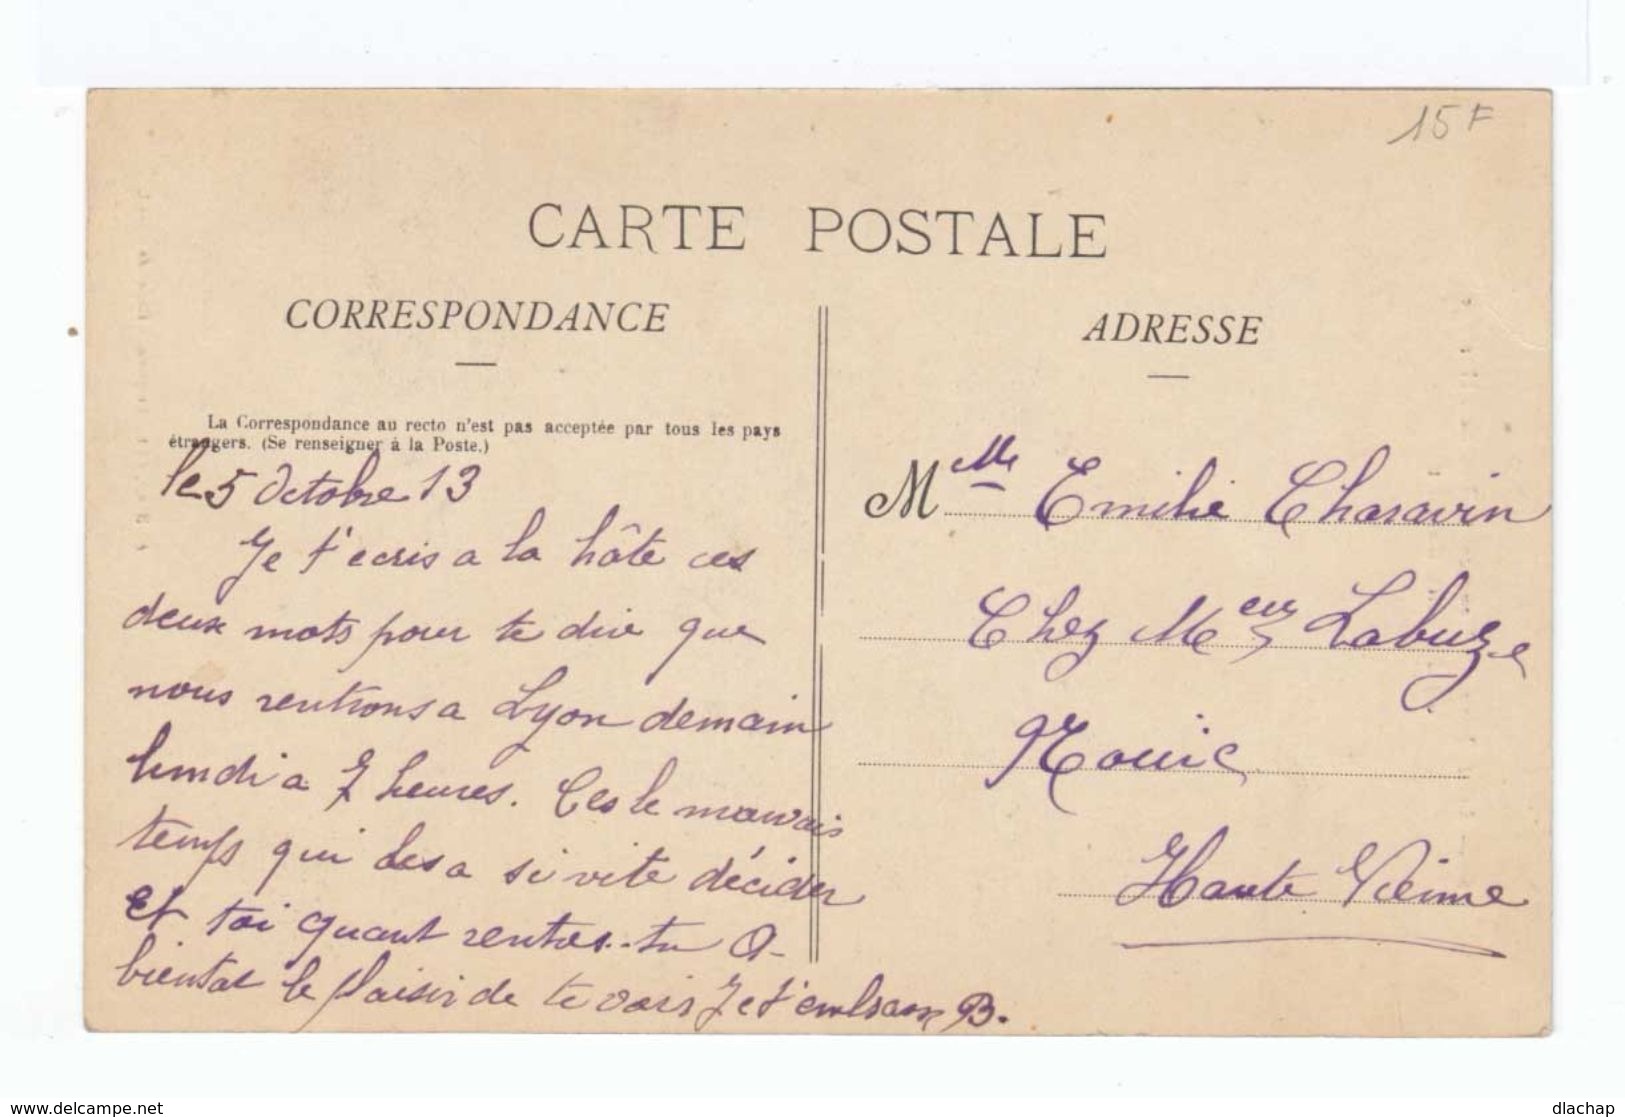 15 F
CARTE POSTALE
CORRESPONDANCE
La Correspondance au recto n'est pas acceptée par tous les pays
étrangers. (Se renseigner à la Poste.)
le 5 Octobre 13
Je t'ecris a la hâte ces
deux mots pour te dire que
nous rentrons a Lyon demain
lundi a 7 heures. Ces le mauvais
temps qui des a si vite décider
et toi quant rentres-tu A-
bientot le plaisir de te voir Je t'embrasse B.
ADRESSE
Mlle Emilie Charavin
Chez Meur Labuze
Nouic
Haute Vienne
www.delcampe.net
dlachap